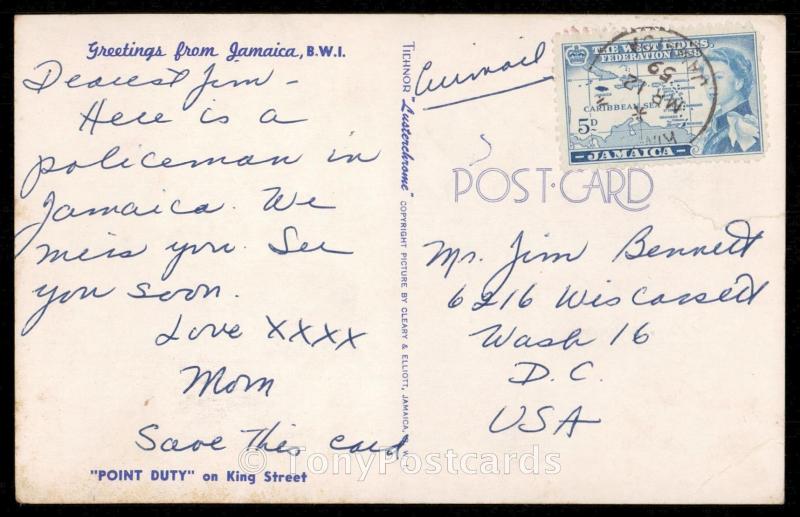 Greetings from Jamaica, B.W.I.
Dearest Jim -
Here is a
policeman in
Jamaica. We
miss you. See
you soon.
Love XXXX
Mom
Save This card.
"POINT DUTY" on King Street
TICHNOR "Lusterchrome" COPYRIGHT PICTURE BY CLEARY & ELLIOTT, JAMAICA, B.W.I.
Airmail
THE WEST INDIES
FEDERATION 1958
CARIBBEAN SEA
5D
JAMAICA
MR 12
59
POST-CARD
Mr. Jim Bennett
6216 Wiscassett
Wash 16
D.C.
USA
© TonyPostcards